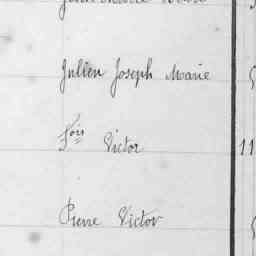 Julien Joseph Marie
fois Victor 11
Pierre Victor